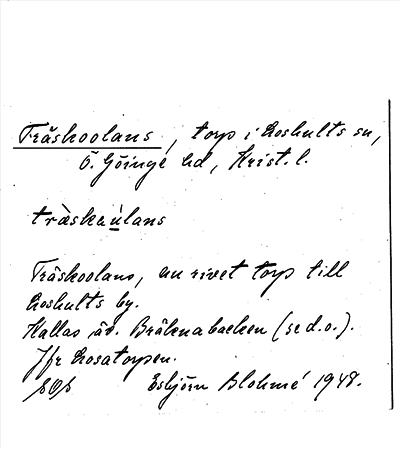 Träskoolans, torp i Loshults sn,
Ö. Göinge hd, Krist. l.
træ̀skaúlans
Träskoolans, nu rivet torp till
Loshults by.
Kallas äv. Bräknabacken (se d.o.).
Jfr Losatorpen.
Esbjörn Blohmé 1948.